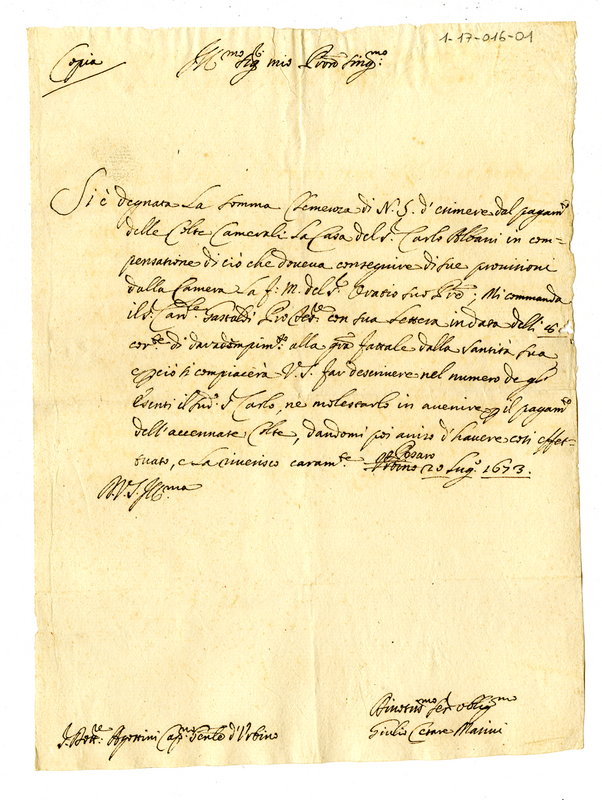 1-17-016-01
Copia
Ill.mo Sig.r mio P̃ron Sing.mo
Si è degnata La somma Clemenza di N. S. d'esimere dal pagam.to
delle Colte Camerali La Casa del S.r Carlo Albani in com=
pensatione di ciò che doveva conseguire di sue provisioni
dalla Camera la f: M. del S.r Oratio suo P̃re; Mi commanda
il S.r Car.le Gastaldi Pro Tes.re con sua lettera in data delli 15
cor.te di dar adempim.to alla gr̃a fattale dalla Santità sua
e p̱ciò si compiacerà V.S. far descrivere nel numero de gli
Esenti il sud.o S. Carlo, ne molestarlo in avvenire p̱ il pagam.to
dell'accennate Colte, dandomi poi aviso d'havere così effet=
tuato, e La riverisco caram.te Pesaro
Urbino 20 Lug.o 1673.
D. V. S. Ill.ma
Divotis.mo Ser. oblig.mo
Giulio Cesare Marini
S. Bart: Agostini Gente d'Urbino